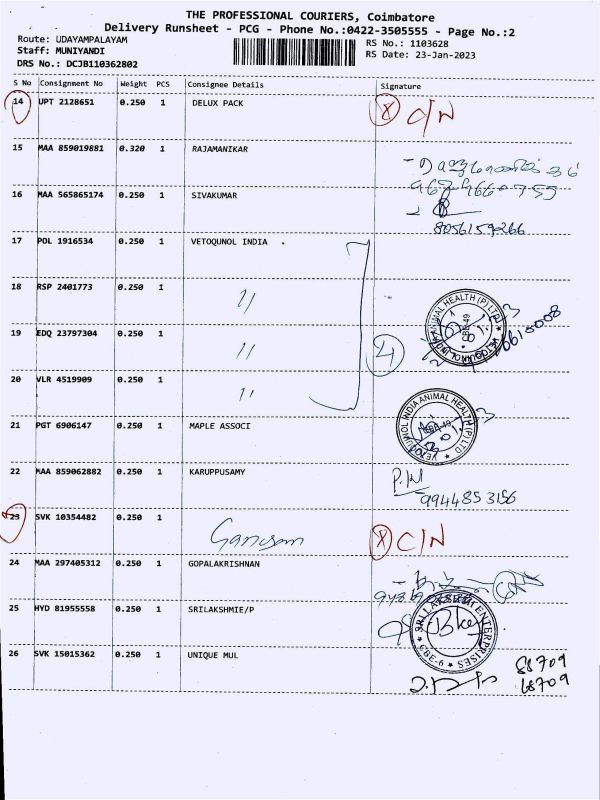 THE PROFESSIONAL COURIERS, Coimbatore
Delivery Runsheet - PCG - Phone No.:0422-3505555 - Page No.:2
Route: UDAYAMPALAYAM
RS No.: 1103628
Staff: MUNIYANDI
RS Date: 23-Jan-2023
DRS No.: DCJB110362802
S No Consignment No Weight PCS Consignee Details Signature
14 UPT 2128651 0.250 1 DELUX PACK
C/N
15 MAA 859019881 0.320 1 RAJAMANIKAR
16 MAA 565865174 0.250 1 SIVAKUMAR
8056159266
17 POL 1916534 0.250 1 VETOQUNOL INDIA .
18 RSP 2401773 0.250 1 "
19 EDQ 23797304 0.250 1 "
4
20 VLR 4519909 0.250 1 "
21 PGT 6906147 0.250 1 MAPLE ASSOCI
VETOQUINOL INDIA ANIMAL HEALTH (P) LTD
22 MAA 859062882 0.250 1 KARUPPUSAMY
P.W
9944853156
23 SVK 10354482 0.250 1
Ganesan
C/N
24 MAA 297405312 0.250 1 GOPALAKRISHNAN
25 HYD 81955558 0.250 1 SRILAKSHMIE/P
SRI LAKSHMI ENTERPRISES
CBE-6
26 SVK 15015362 0.250 1 UNIQUE MUL
68709